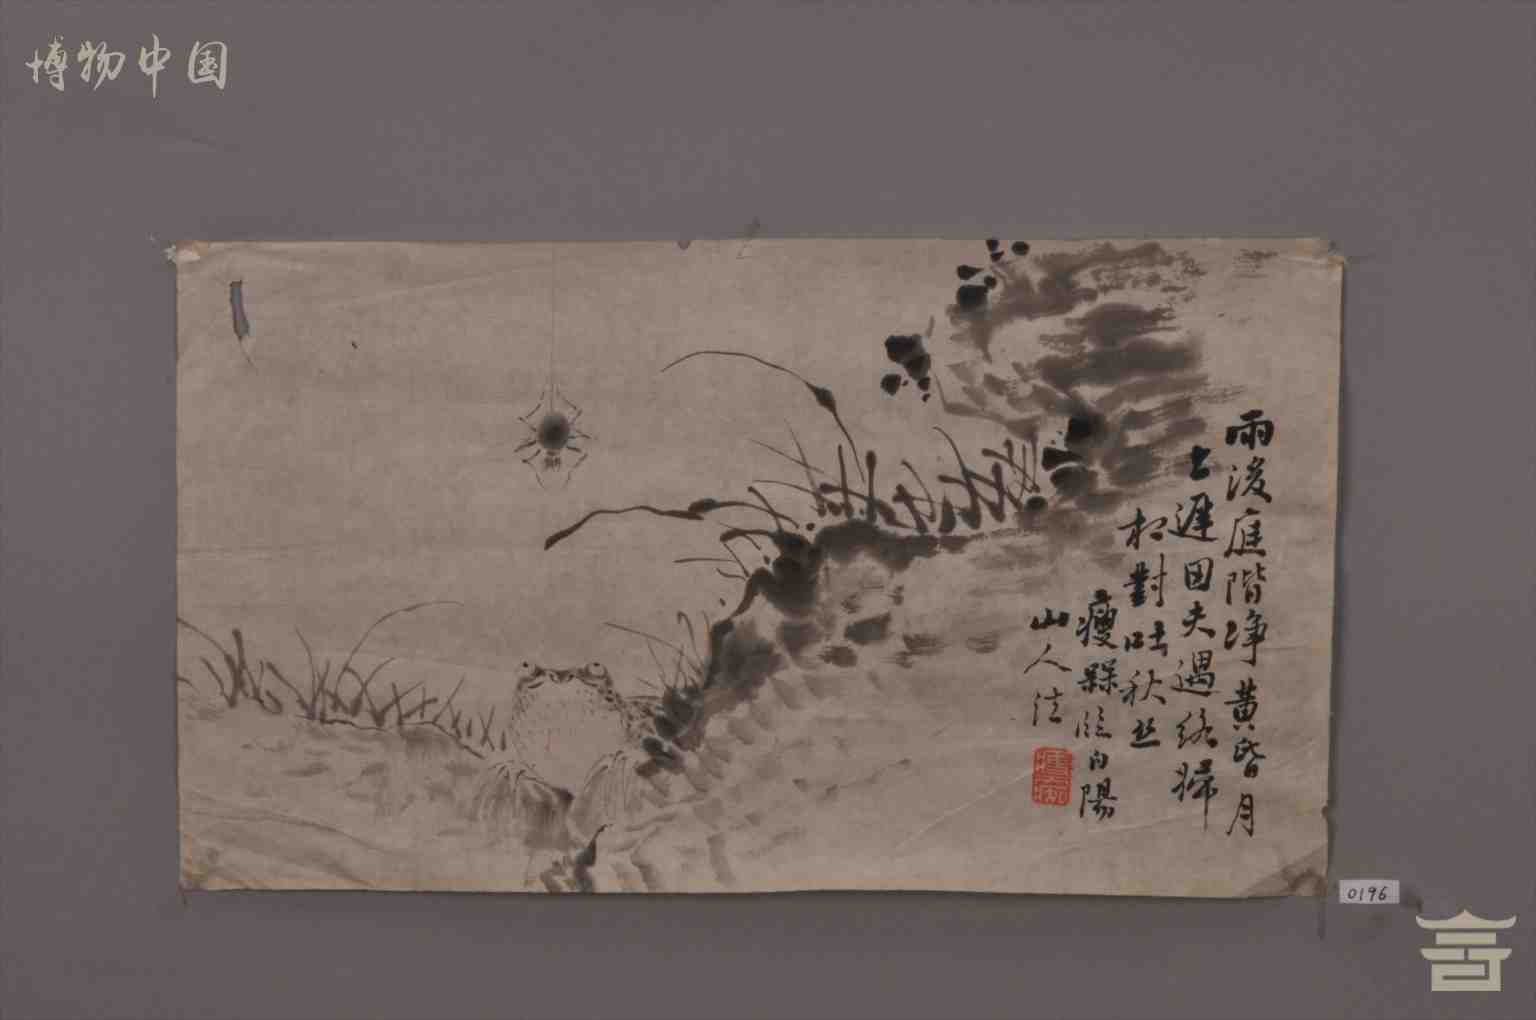 博物中国
雨後應階净黄昏月
上遲因夫遇絡緯
相對吐秋丝
瘦𣗳临白陽
山人法
0196